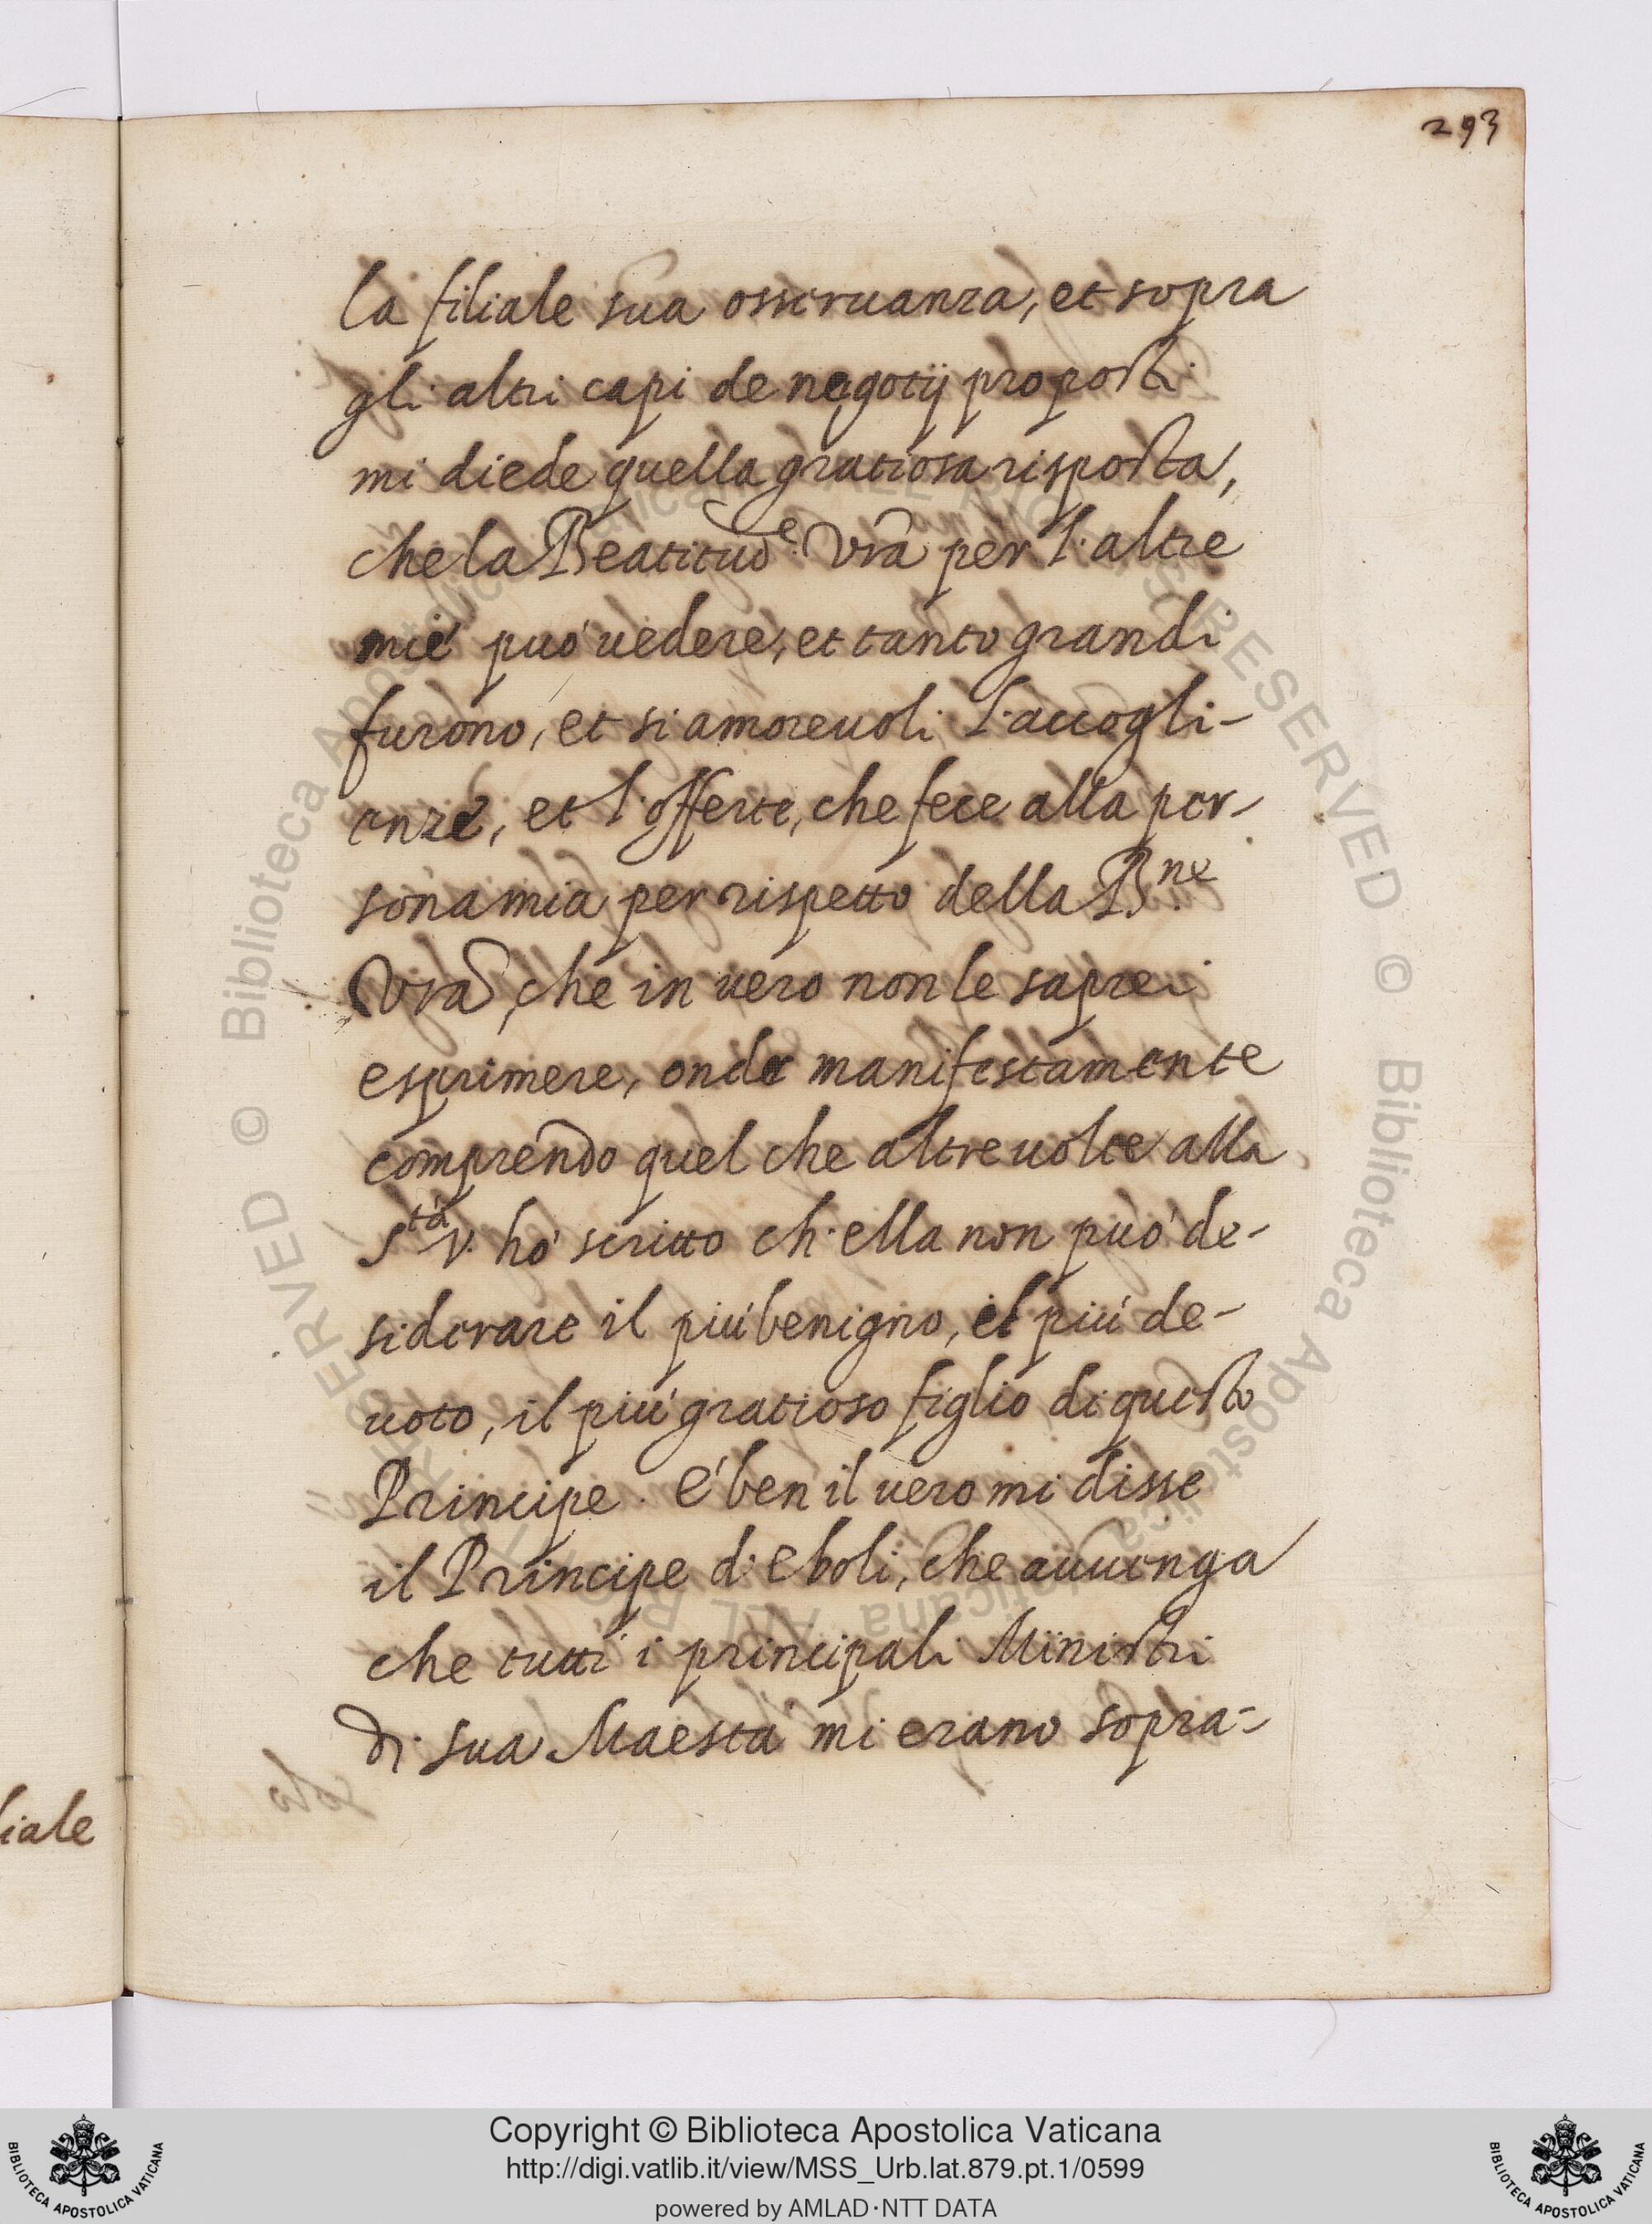 293
la filiale sua osseruanza, et sopra
gli altri capi de negotij proposti
mi diede quella gratiosa risposta,
che la Beatitud.e Vra per l'altre
mie può uedere, et tanto grandi
furono, et si amoreuoli l'accogli-
enze, et l'offerte, che fece alla per-
sona mia per rispetto della B.ne
Vra, che in uero non le saprei
esprimere, onde manifestamente
comprendo quel che altre uolte alla
S.tà V. hò scritto ch'ella non può de-
siderare il più benigno, il più de-
uoto, il più gratioso figlio di questo
Principe. E' ben il uero mi disse
il Principe d'Eboli, che auuenga
che tutti i principali Ministri
di sua Maestà mi erano sopra-
liale
Copyright © Biblioteca Apostolica Vaticana
http://digi.vatlib.it/view/MSS_Urb.lat.879.pt.1/0599
powered by AMLAD·NTT DATA
BIBLIOTECA APOSTOLICA VATICANA
BIBLIOTECA APOSTOLICA VATICANA
© Biblioteca Apostolica Vaticana ALL RIGHTS RESERVED © Biblioteca Apostolica Vaticana ALL RIGHTS RESERVED